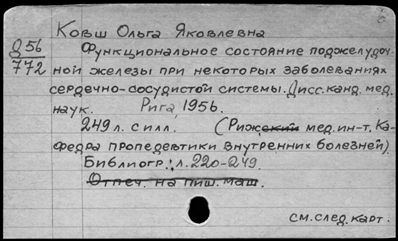 Ковш Ольга Яковлевна
856
772
Функциональное состояние поджелудоч-
ной железы при некоторых заболеваниях
сердечно-сосудистой системы. Дисс. канд. мед.
наук. Рига, 1956.
249 л. с илл. (Рижский мед. ин-т. Ка-
федра пропедевтики внутренних болезней).
Библиогр.: л. 220-249.
Отпеч. на пиш. маш.
см. след. карт.